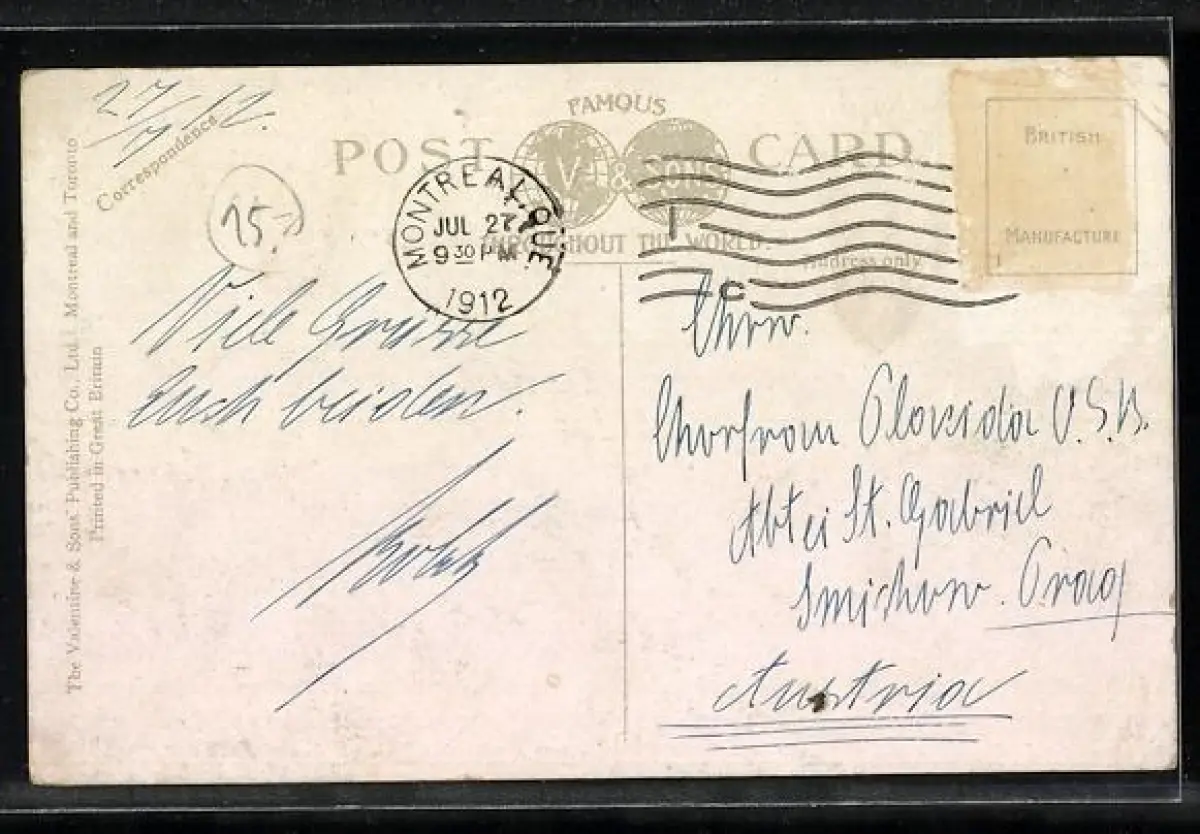 27/7 12.
Correspondence
FAMOUS
POST CARD
V. & SONS
THROUGHOUT THE WORLD.
Address only
BRITISH
MANUFACTURE
MONTREAL, QUE.
JUL 27
9 30 PM
1912
C
The Valentine & Sons' Publishing Co., Ltd., Montreal and Toronto
Printed in Great Britain
Viele Grüsse
Euch beiden.
Ehrw.
Chorfrau Placida O.S.B.
Abtei St. Gabriel
Smichow. Prag
Austria